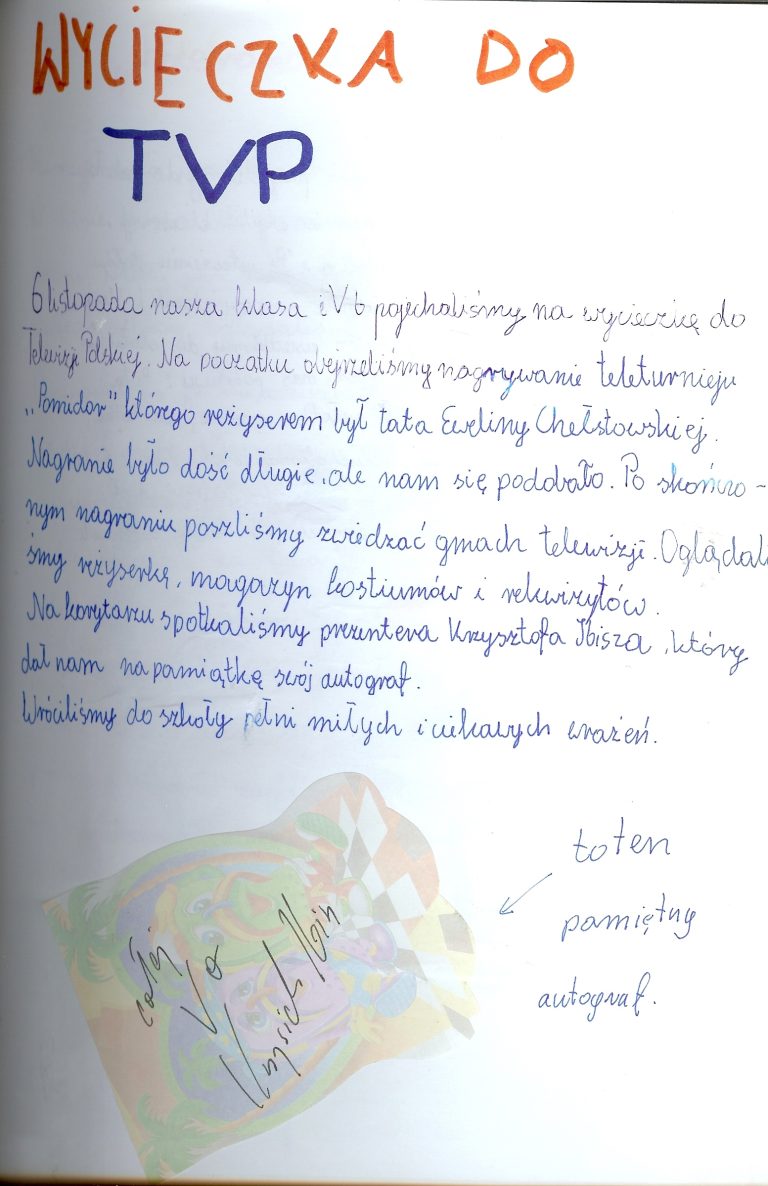 WYCIECZKA DO
TVP
6 listopada nasza klasa i V b pojechaliśmy na wycieczkę do
Telewizji Polskiej. Na początku obejrzeliśmy nagrywanie teleturnieju
„Pomidor" którego reżyserem był tata Eweliny Chełstowskiej.
Nagranie było dość długie, ale nam się podobało. Po skończo-
nym nagraniu poszliśmy zwiedzać gmach telewizji. Oglądali
śmy reżyserkę, magazyn kostiumów i rekwizytów.
Na korytarzu spotkaliśmy prezentera Krzysztofa Ibisza, który
dał nam na pamiątkę swój autograf.
Wróciliśmy do szkoły pełni miłych i ciekawych wrażeń.
to ten
pamiętny
autograf.
całej
V a